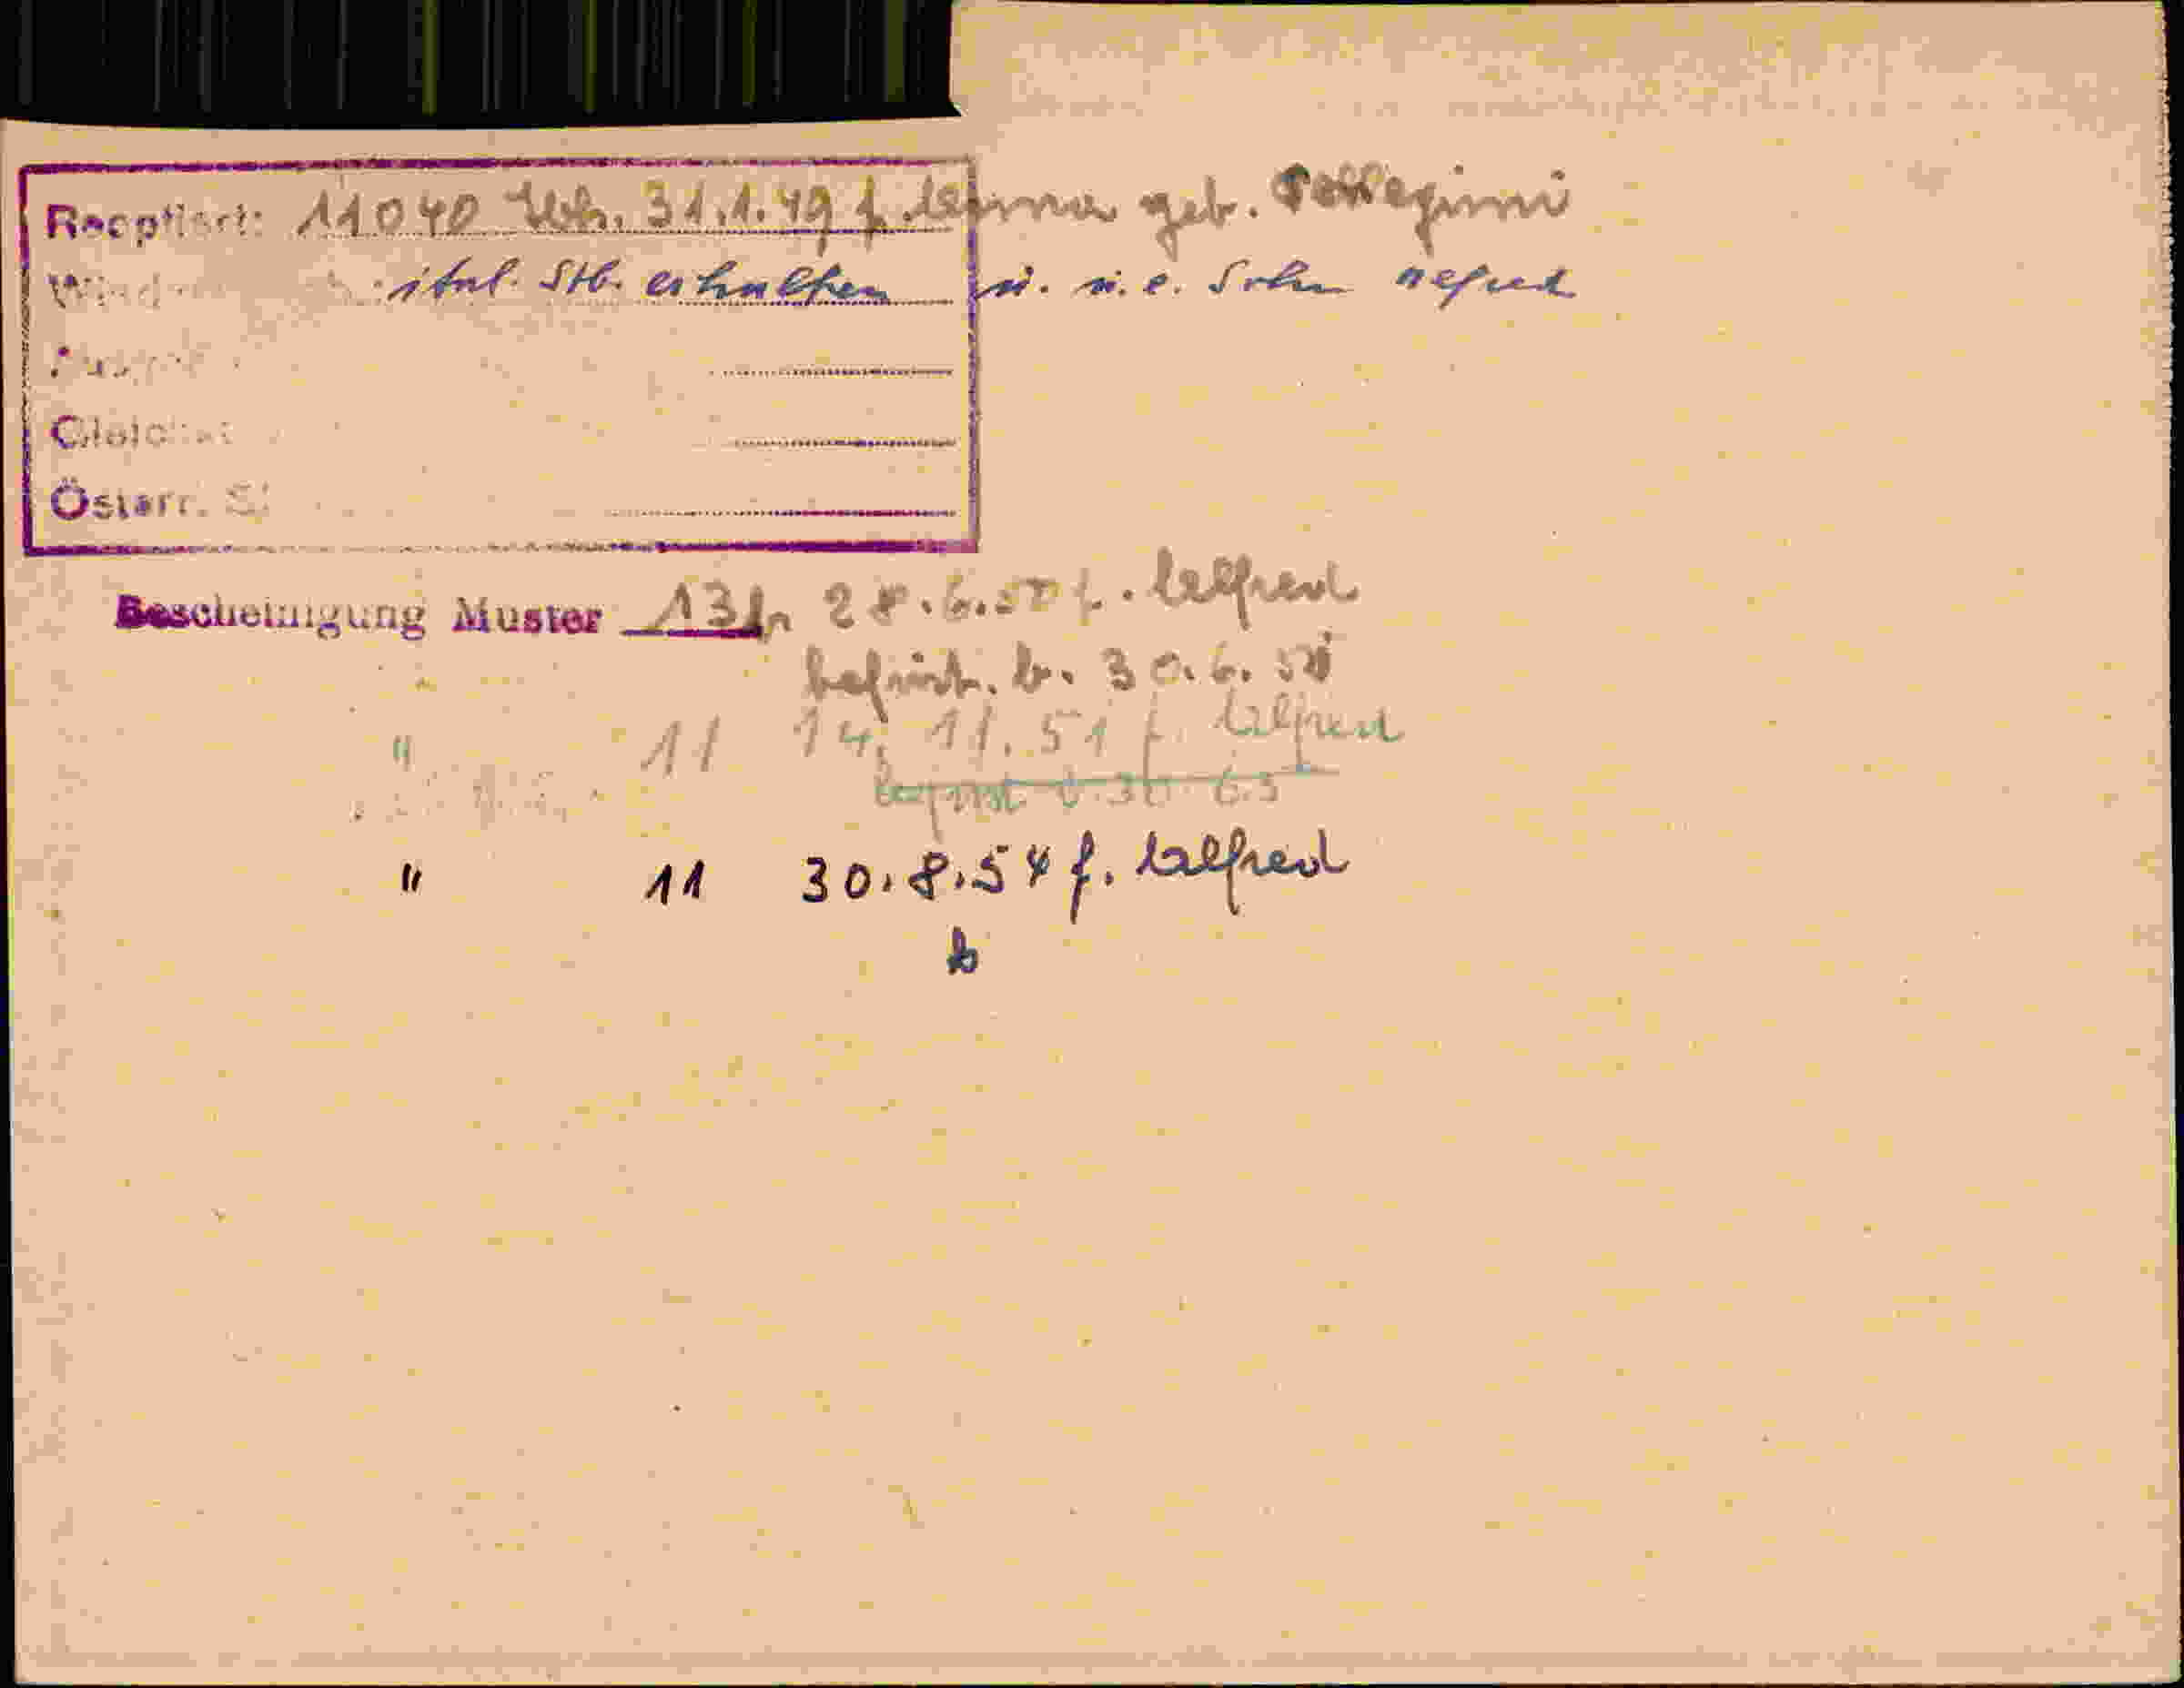 Reoptiert: 11040 31.1.49 f. Anna geb. Pellegrini
ital. Stb. erhalten u. u. e. Sohn Alfred
Österr.
Bescheinigung Muster 13 28.6.50 f. Alfred
befrist. b. 30.6.
" 11 14. 11. 51 f. Alfred
befrist b. 30. 6.5
" 11 30.8.54 f. Alfred
b